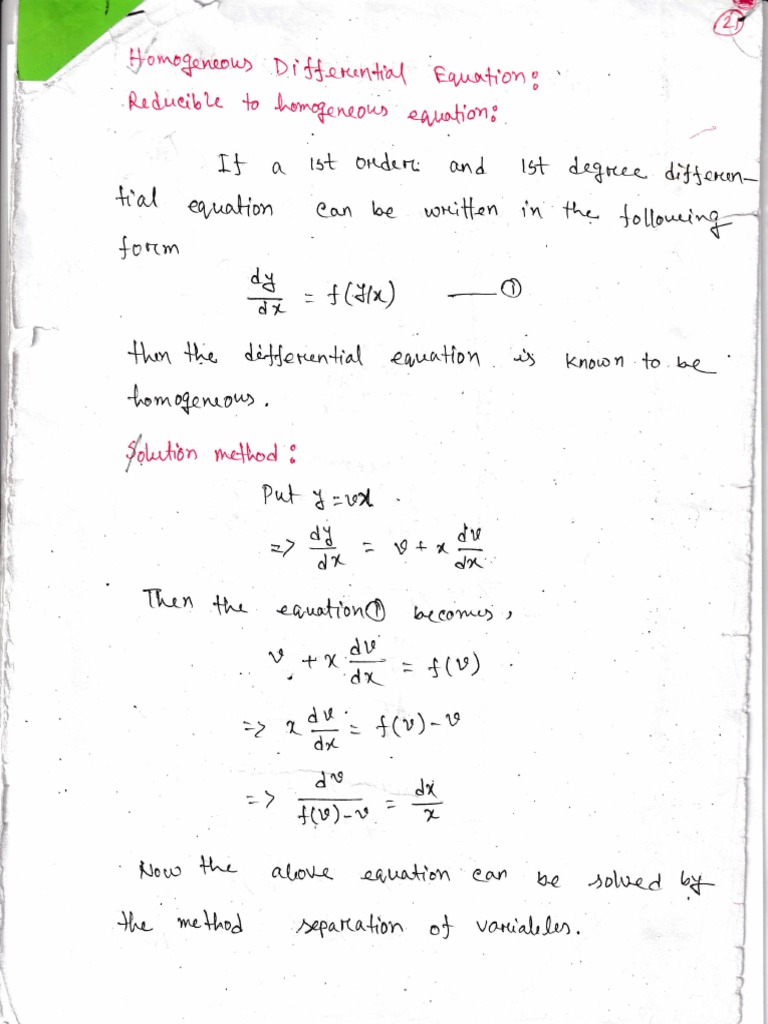 2
Homogeneous Differential Equation:
Reducible to homogeneous equation:
If a 1st order and 1st degree differen-
tial equation can be written in the following
form
dy/dx = f(y/x) —— ①
then the differential equation is known to be
homogeneous.
Solution method:
Put y = vx
=> dy/dx = v + x dv/dx
Then the equation ① becomes,
v + x dv/dx = f(v)
=> x dv/dx = f(v) - v
=> dv/(f(v) - v) = dx/x
Now the above equation can be solved by
the method separation of variables.